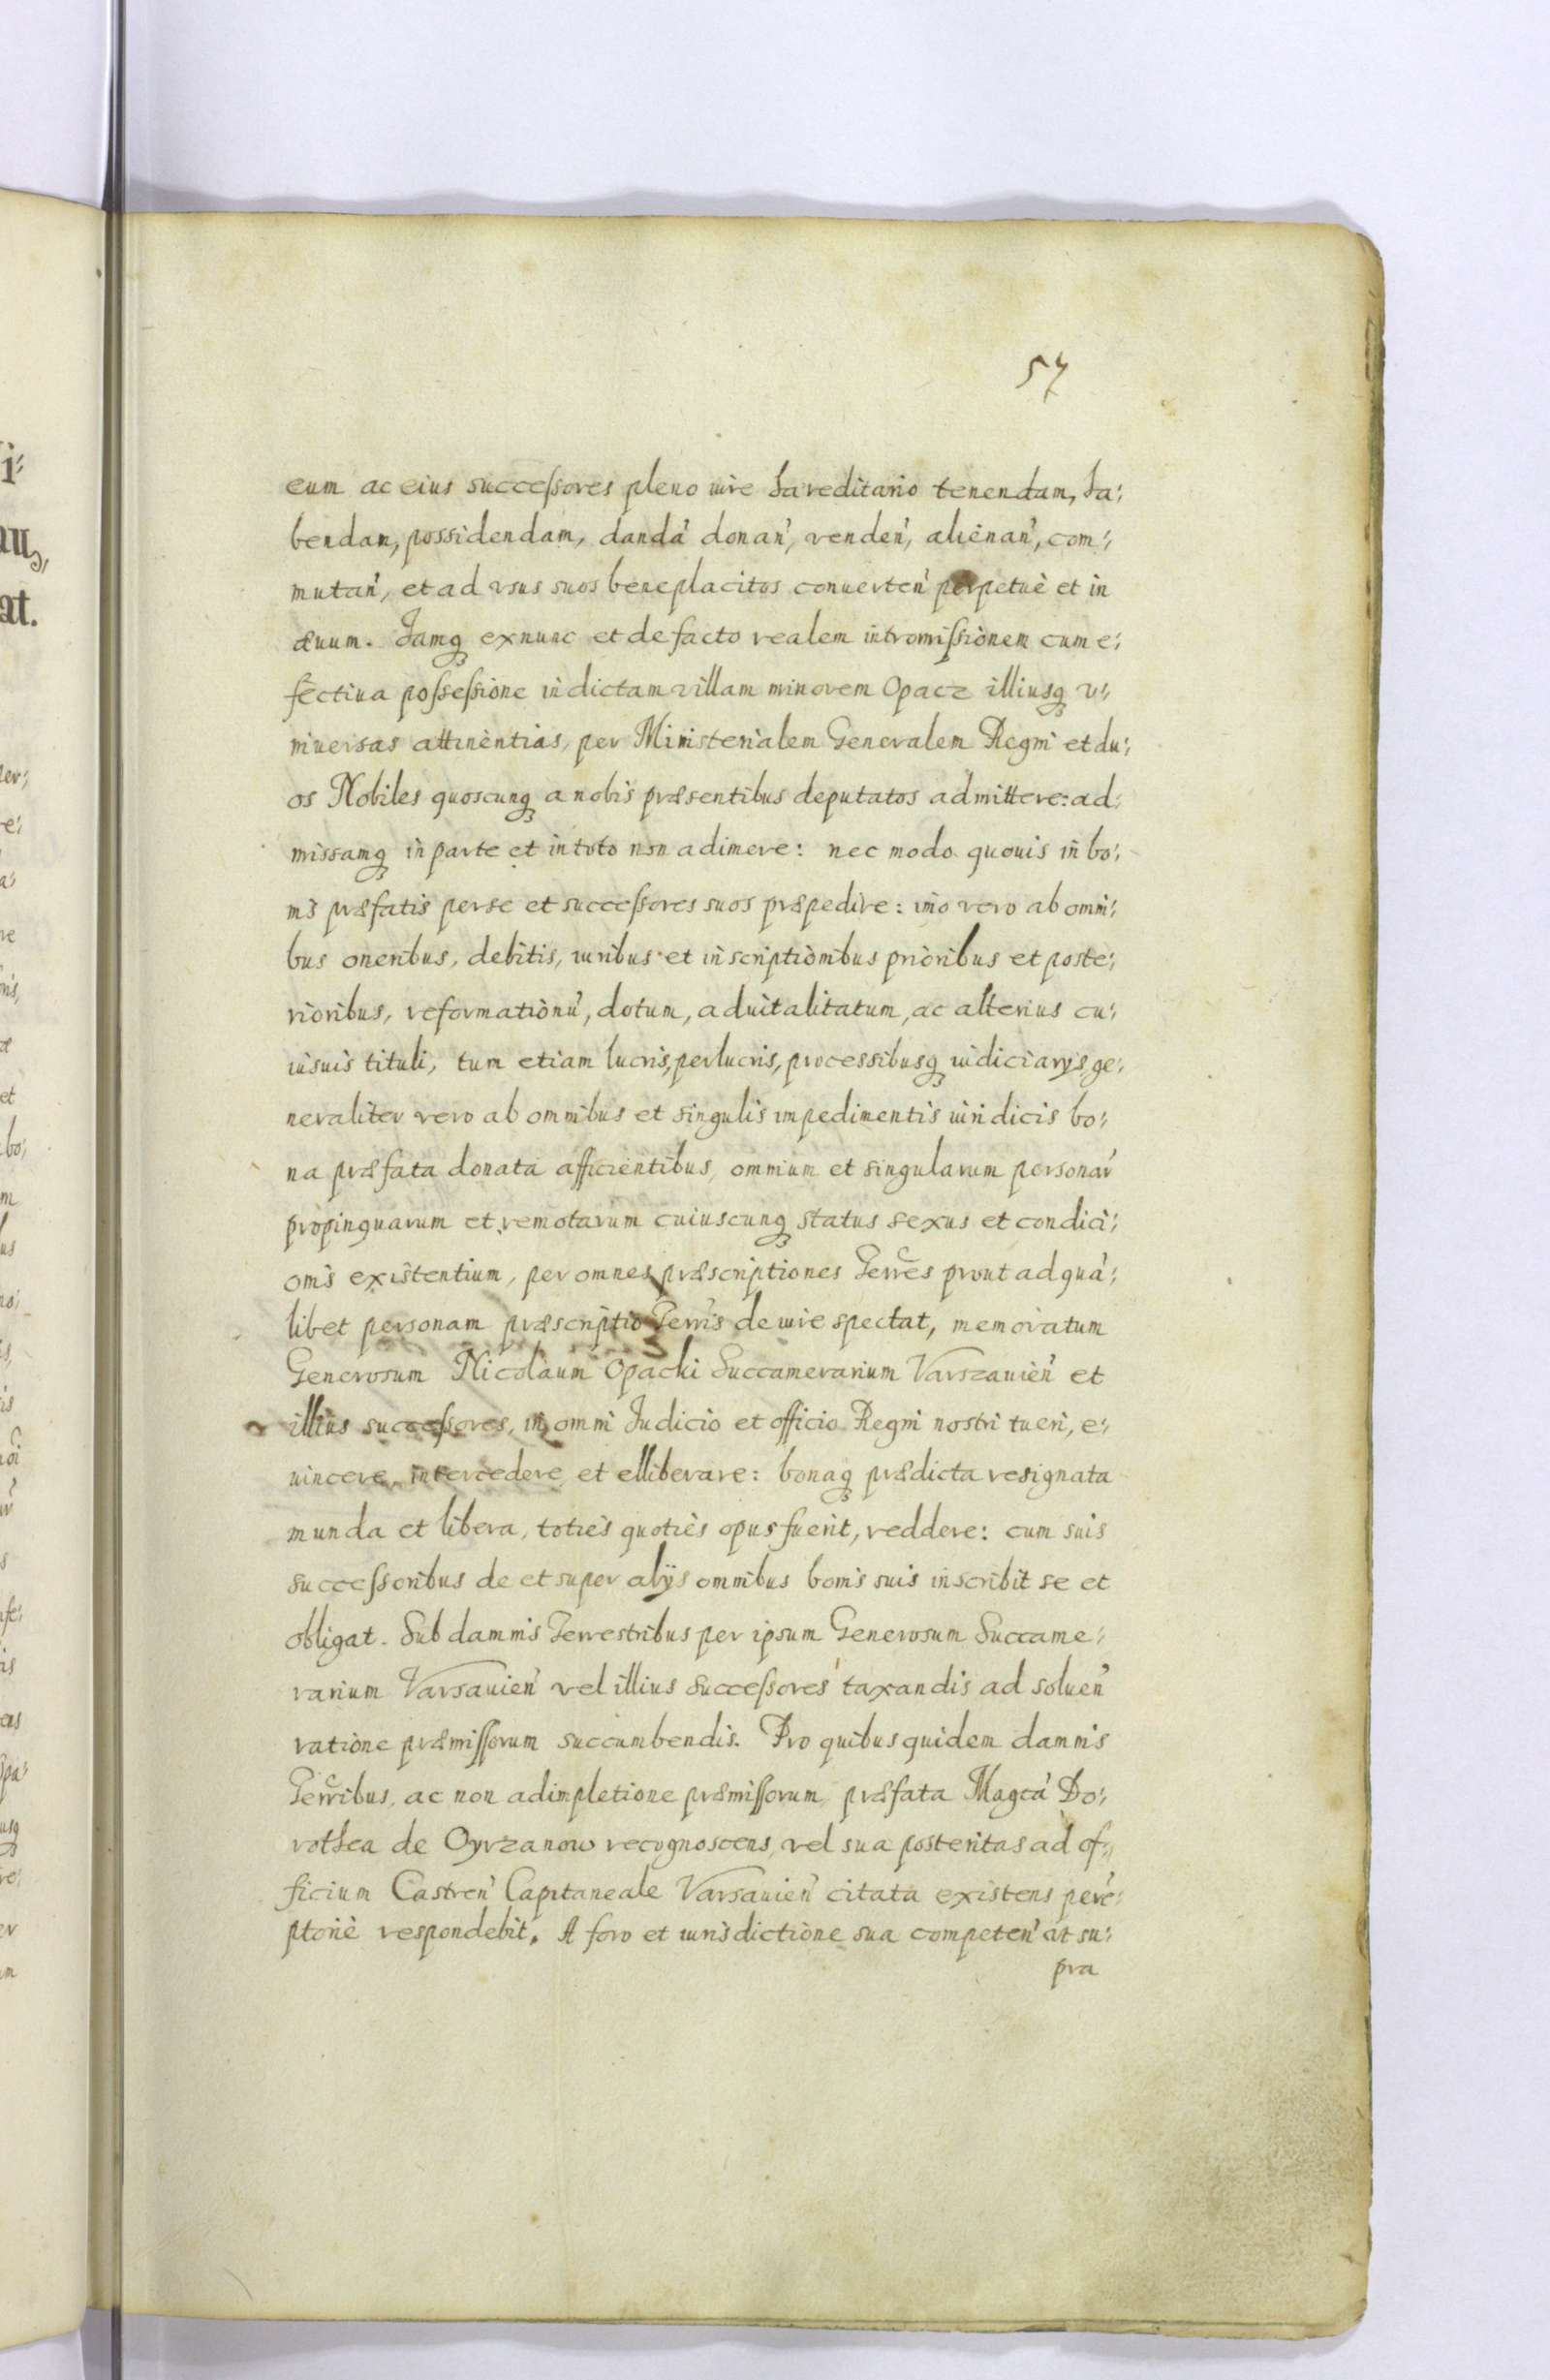 57
eum ac eius successores pleno iure hæreditario tenendam, ha:
bendam, possidendam, dandā donań, vendeń, alienań, com:
mutań, et ad vsus suos beneplacitos conuerteń perpetuè et in
æuum. Iamq exnunc et de facto realem intromissionem cum e:
fectiua possessione in dictam villam minorem Opacz illiusq v:
niuersas attinentias, per Ministerialem Generalem Regni et du:
os Nobiles quoscunq a nobis præsentibus deputatos admittere: ad:
missamq in parte et in toto non adimere: nec modo quouis in bo:
nis præfatis per se et successores suos præpedire: imo vero ab omni:
bus oneribus, debitis, iuribus et inscriptionibus prioribus et poste:
rioribus, reformationū, dotum, aduitalitatum, ac alterius cu:
iusuis tituli, tum etiam lucris, perlucris, processibusq iudiciarys, ge:
neraliter vero ab omnibus et singulis impedimentis iuridicis bo:
na præfata donata afficientibus, omnium et singularum personar
propinquarum et remotarum cuiuscunq status sexus et condici:
onis existentium, per omnes præscriptiones Terres prout ad quā:
libet personam præscriptio Terris de iure spectat, memoratum
Generosum Nicolaum Opacki Succamerarium Varszauień et
illius successores, in omni Iudicio et officio Regni nostri tueri, e:
uincere, intercedere et elliberare: bonaq prædicta resignata
munda et libera, toties quoties opus fuerit, reddere: cum suis
successoribus de et super alÿs omnibus bonis suis inscribit se et
obligat. Sub damnis Terrestribus per ipsum Generosum Succame:
rarium Varsauień vel illius successores taxandis ad solueń
ratione præmissorum succumbendis. Pro quibus quidem damnis
Terribus, ac non adimpletione præmissorum, præfata Magca Do:
rothea de Oyrzanow recognoscens, vel sua posteritas ad of:
ficium Castreń Capitaneale Varsauień citata existens perē:
ptoriè respondebit. A foro et iurisdictione sua competeń at su:
pra